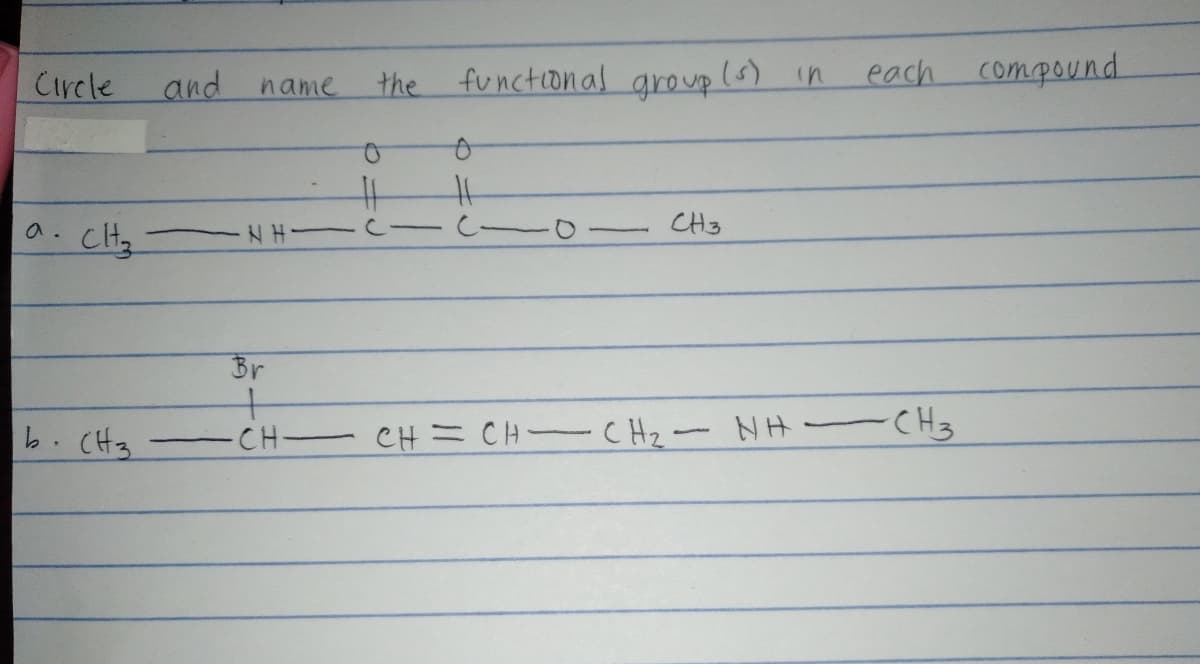 Circle and name the functional group(s) in each compound
O O
|| ||
a. CH3 — NH — C — C — O — CH3
Br
|
b. CH3 — CH — CH = CH — CH2 — NH — CH3